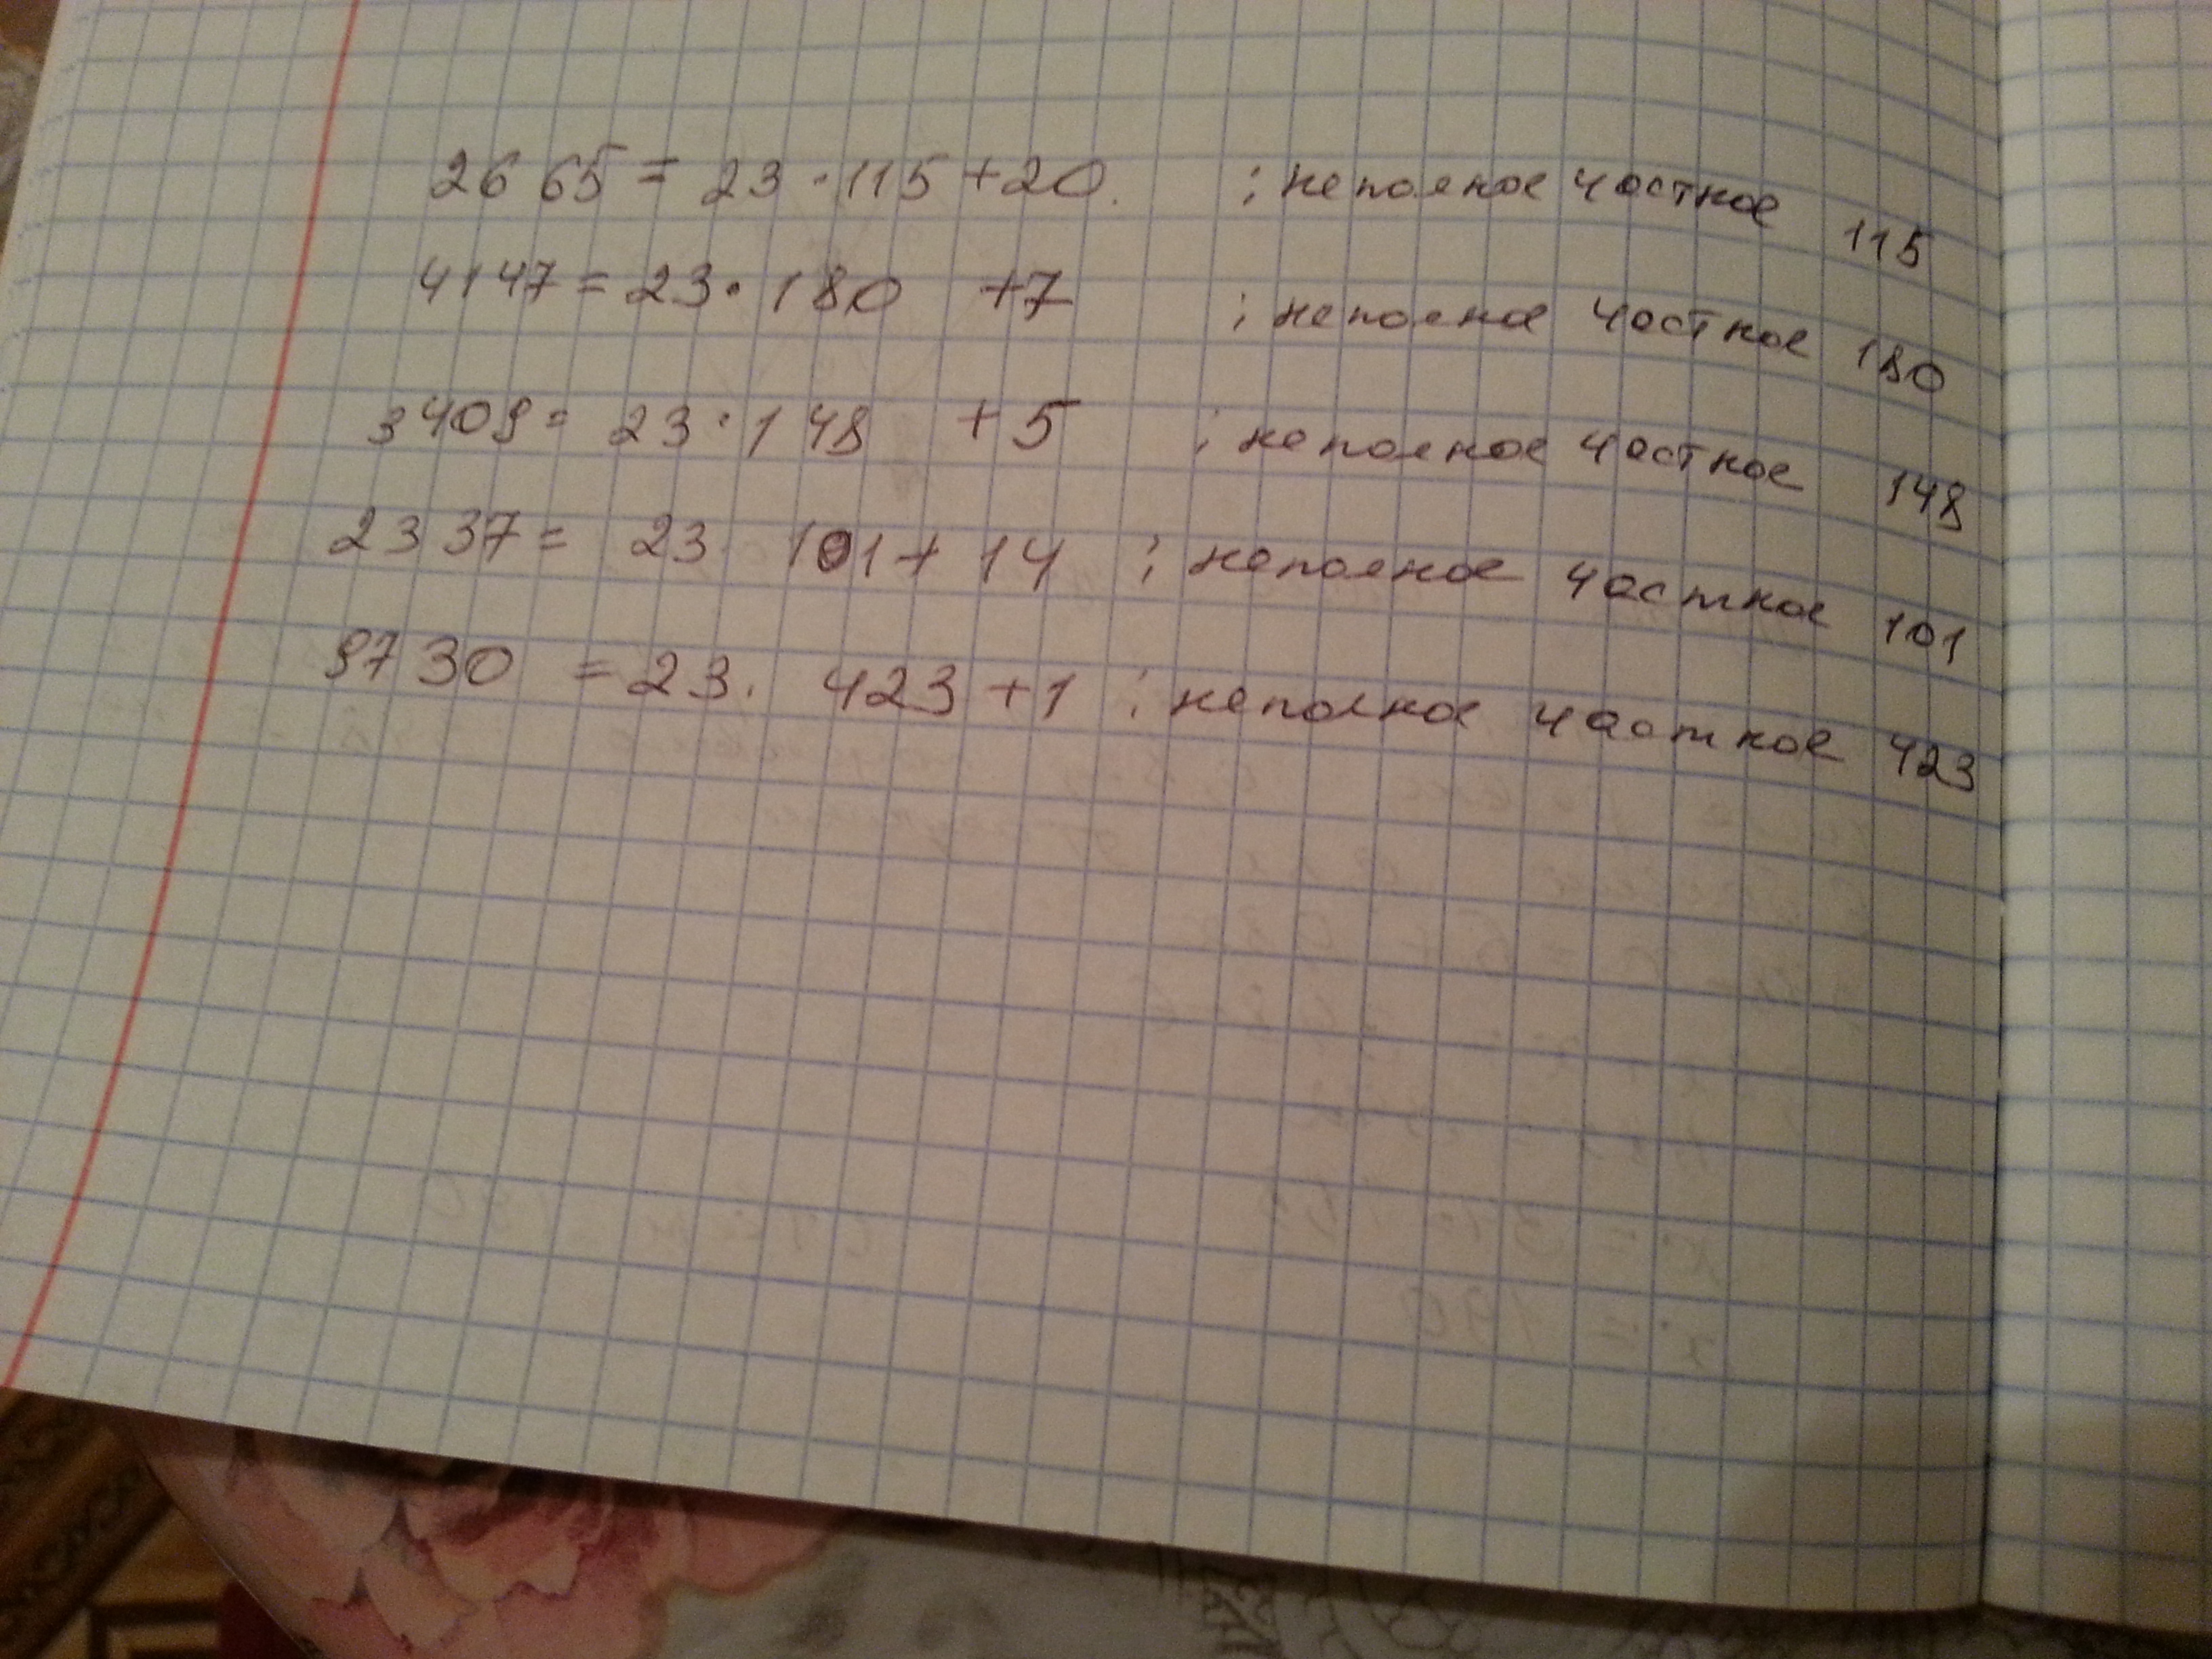 2665 = 23 · 115 + 20. ; неполное частное 115
4147 = 23 · 180 + 7 ; неполное частное 180
3409 = 23 · 148 + 5 ; неполное частное 148
2337 = 23 101 + 14 ; неполное частное 101
9730 = 23 · 423 + 1 ; неполное частное 423